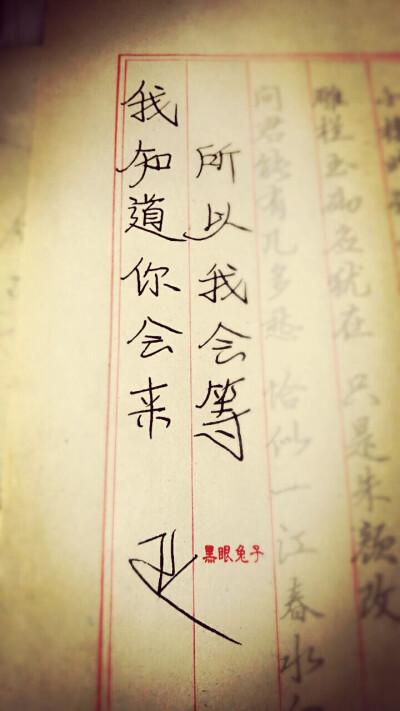 我知道你会来
所以我会等
黑眼兔子
雕栏玉砌应犹在 只是朱颜改
问君能有几多愁 恰似一江春水